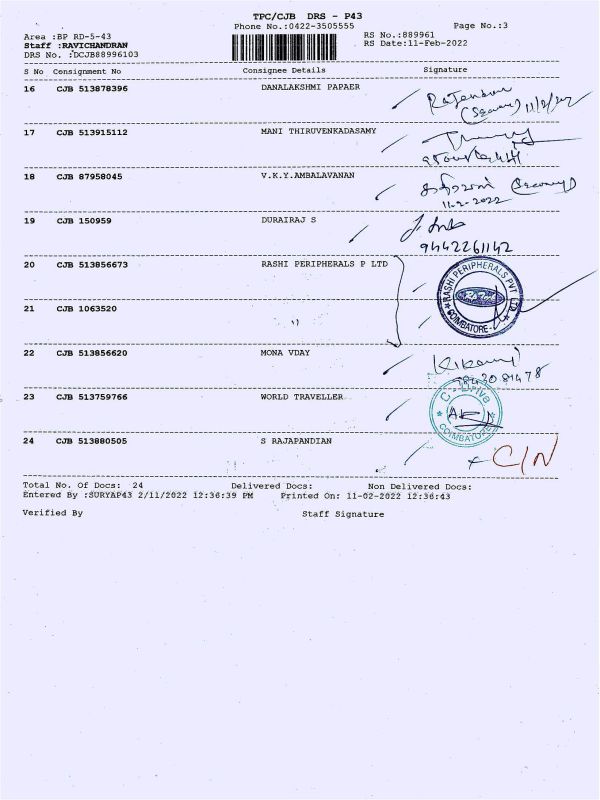 TPC/CJB DRS - P43
Phone No.:0422-3505555 Page No.:3
Area :BP RD-5-43 RS No.:889961
Staff :RAVICHANDRAN RS Date:11-Feb-2022
DRS No. :DCJB88996103
S No Consignment No Consignee Details Signature
16 CJB 513878396 DANALAKSHMI PAPAER
Rajendran
(Security) 11/2/202
17 CJB 513915112 MANI THIRUVENKADASAMY
18 CJB 87958045 V.K.Y.AMBALAVANAN
(Security)
11-2-2022
19 CJB 150959 DURAIRAJ S
9442261142
20 CJB 513856673 RASHI PERIPHERALS P LTD
RASHI PERIPHERALS PVT LTD
COIMBATORE
21 CJB 1063520 "
22 CJB 513856620 MONA VDAY
23 CJB 513759766 WORLD TRAVELLER
COIMBATORE
24 CJB 513880505 S RAJAPANDIAN
C/N
Total No. Of Docs: 24 Delivered Docs: Non Delivered Docs:
Entered By :SURYAP43 2/11/2022 12:36:39 PM Printed On: 11-02-2022 12:36:43
Verified By Staff Signature